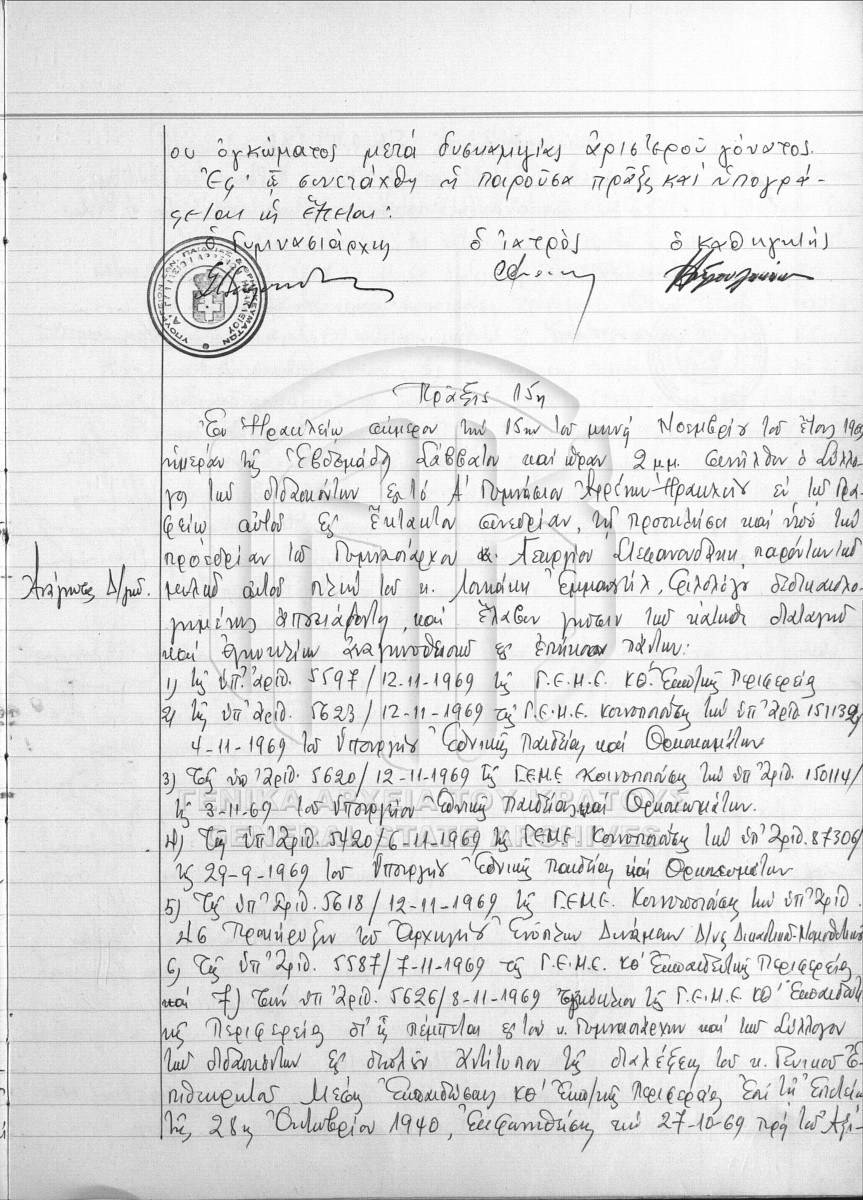 ου ὀγκώματος μετά δυσκαμψίας ἀριστεροῦ γόνατος.
Ἐφ' ᾧ συνετάχθη ἡ παροῦσα πρᾶξις καί ὑπογρά-
φεται ὡς ἕπεται:
Ὁ Γυμνασιάρχης ὁ ἰατρός ὁ καθηγητής
Πρᾶξις 15η
Ἐν Ἡρακλείῳ σήμερον τήν 15ην τοῦ μηνός Νοεμβρίου τοῦ ἔτους 1969
ἡμέραν τῆς Ἑβδομάδος Σάββατον καί ὥραν 2 μ.μ. συνῆλθεν ὁ Σύλλο-
γος τῶν διδασκόντων εἰς τό Α' Γυμνάσιον Ἀρρένων Ἡρακλείου ἐν τῷ Γρα-
φείῳ αὐτοῦ εἰς ἔκτακτον συνεδρίαν, τῇ προσκλήσει καί ὑπό τήν
προεδρίαν τοῦ Γυμνασιάρχου κ. Γεωργίου Στεφανουδάκη, παρόντων τῶν
Ἀνάγνωσις Δ/γῶν.
μελῶν αὐτοῦ πλήν τοῦ κ. Ἐμμανουήλ, Φιλολόγου δεδικαιολο-
γημένως ἀπουσιάζοντος, καί ἔλαβεν γνῶσιν τῶν κάτωθι διαταγῶν
καί ἐγκυκλίων ἀναγνωσθεισῶν εἰς ἐπήκοον πάντων:
1) τῆς ὑπ' ἀριθ. 5597/12-11-1969 τῆς Γ.Ε.Μ.Ε. ΚΘ' Ἐκπ/κῆς Περιφερείας
2) τῆς ὑπ' ἀριθ. 5623/12-11-1969 τῆς Γ.Ε.Μ.Ε. κοινοποιούσης τήν ὑπ' ἀριθ. 151139/
4-11-1969 τοῦ Ὑπουργείου Ἐθνικῆς Παιδείας καί Θρησκευμάτων
3) Τῆς ὑπ' ἀριθ. 5620/12-11-1969 τῆς Γ.Ε.Μ.Ε. Κοινοποιούσης τήν ὑπ' ἀριθ. 150114/
τῆς 3-11-69 τοῦ Ὑπουργείου Ἐθνικῆς Παιδείας καί Θρησκευμάτων.
4) Τῆς ὑπ' ἀριθ. 5420/6-11-1969 τῆς Γ.Ε.Μ.Ε. Κοινοποιούσης τήν ὑπ' ἀριθ. 87306/
τῆς 29-9-1969 τοῦ Ὑπουργείου Ἐθνικῆς Παιδείας καί Θρησκευμάτων
5) Τῆς ὑπ' ἀριθ. 5618/12-11-1969 τῆς Γ.Ε.Μ.Ε. Κοινοποιούσης τήν ὑπ' ἀριθ.
46 Προκήρυξιν τοῦ Ἀρχηγείου Ἐνόπλων Δυνάμεων Δ/νσις Δικαστικοῦ-Νομοθετικοῦ
6) Τῆς ὑπ' ἀριθ. 5587/7-11-1969 τῆς Γ.Ε.Μ.Ε. ΚΘ' Ἐκπαιδευτικῆς Περιφερείας
καί 7) Τήν ὑπ' ἀριθ. 5626/8-11-1969 ἐγκύκλιον τῆς Γ.Ε.Μ.Ε. ΚΘ' Ἐκπαιδευτι-
κῆς Περιφερείας δι' ἧς πέμπεται εἰς τόν κ. Γυμνασιάρχην καί τόν Σύλλογον
τῶν διδασκόντων εἰς διπλοῦν ἀντίτυπον τῆς διαλέξεως τοῦ κ. Γενικοῦ Ἐ-
πιθεωρητοῦ Μέσης Ἐκπαιδεύσεως ΚΘ' Ἐκπ/κῆς Περιφερείας ἐπί τῇ Ἐπετείῳ
τῆς 28ης Ὀκτωβρίου 1940, Ἐκφωνηθείσης τήν 27-10-69 πρό τῶν Ἀξι-
ΓΕΝΙΚΑ ΑΡΧΕΙΑ ΤΟΥ ΚΡΑΤΟΥΣ
GENERAL STATE ARCHIVES